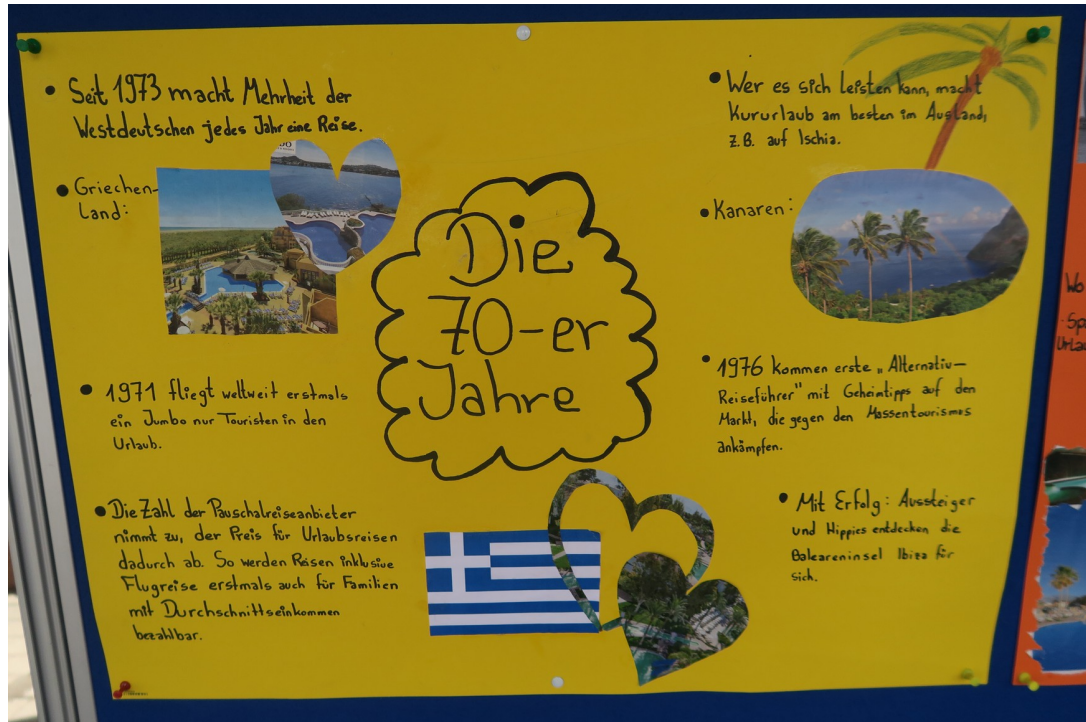 • Seit 1973 macht Mehrheit der
Westdeutschen jedes Jahr eine Reise.
• Griechen-
land:
• 1971 fliegt weltweit erstmals
ein Jumbo nur Touristen in den
Urlaub.
• Die Zahl der Pauschalreiseanbieter
nimmt zu, der Preis für Urlaubsreisen
dadurch ab. So werden Reisen inklusive
Flugreise erstmals auch für Familien
mit Durchschnittseinkommen
bezahlbar.
Die
70-er
Jahre
• Wer es sich leisten kann, macht
Kururlaub am besten im Ausland,
z.B. auf Ischia.
• Kanaren:
• 1976 kommen erste „Alternativ-
Reiseführer" mit Geheimtipps auf den
Markt, die gegen den Massentourismos
ankämpfen.
• Mit Erfolg: Aussteiger
und Hippies entdecken die
Baleareninsel Ibiza für
sich.
Wo